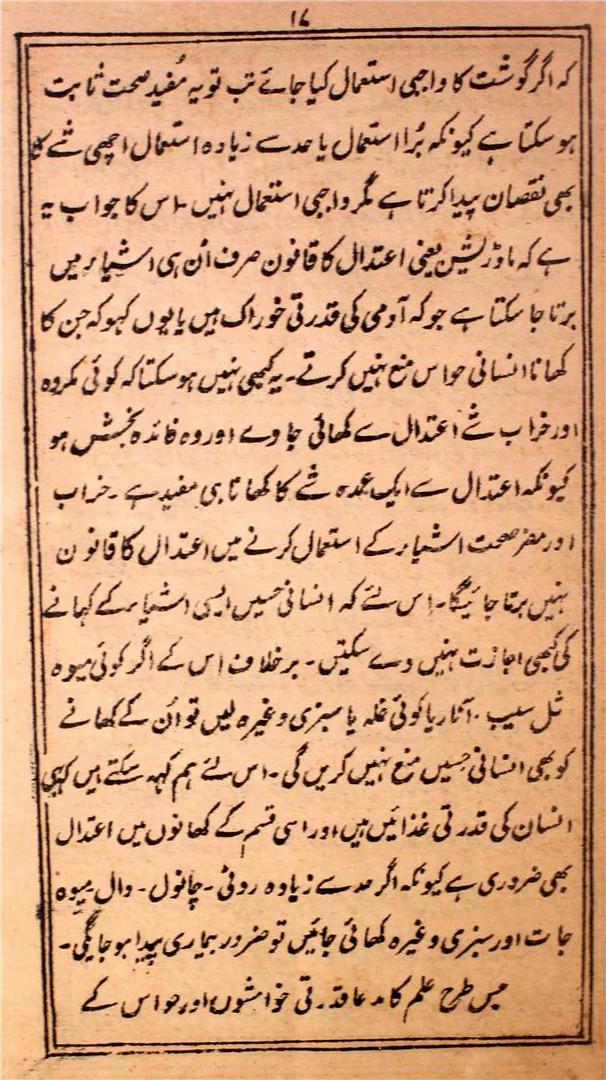 ۱۷
کہ اگر گوشت کا واجبی استعمال کیا جائے تب تو یہ مُفید صحت ثابت
ہو سکتا ہے کیونکہ بُرا استعمال یا حد سے زیادہ استعمال اچھی شے کا
بھی نقصان پیدا کرتا ہے مگر واجبی استعمال نہیں ۔ اس کا جواب یہ
ہے کہ ماڈریشن یعنی اعتدال کا قانون صرف اُن ہی اشیاء میں
برتا جا سکتا ہے جو کہ آدمی کی قدرتی خوراک ہیں یا یوں کہو کہ جن کا
کھانا انسانی حواس منع نہیں کرتے ۔ یہ کبھی نہیں ہو سکتا کہ کوئی مکروہ
اور خراب شے اعتدال سے کھائی جاوے اور وہ فائدہ بخش ہو
کیونکہ اعتدال سے ایک عمدہ شے کا کھانا ہی مفید ہے ۔ خراب
اور مضر صحت اشیاء کے استعمال کرنے میں اعتدال کا قانون
نہیں برتا جائیگا ۔ اِس لئے کہ انسانی حسیں ایسی اشیاء کے کہانے
کی کبھی اجازت نہیں دے سکتیں ۔ برخلاف اس کے اگر کوئی میوہ
مثل سیب ۔ انار یا کوئی غلہ یا سبزی وغیرہ لیں تو اُن کے کھانے
کو بھی انسانی حسیں منع نہیں کریں گی ۔ اس لئے ہم کہہ سکتے ہیں کہ یہی
انسان کی قدرتی غذائیں ہیں اور اسی قسم کے کھانوں میں اعتدال
بھی ضروری ہے کیونکہ اگر حد سے زیادہ روٹی ۔ چانول ۔ دال میوہ
جات اور سبزی وغیرہ کھائی جائیں تو ضرور بیماری پیدا ہو جایگی ۔
جس طرح علم کا مدعا قدرتی خواہشوں اور حواس کے